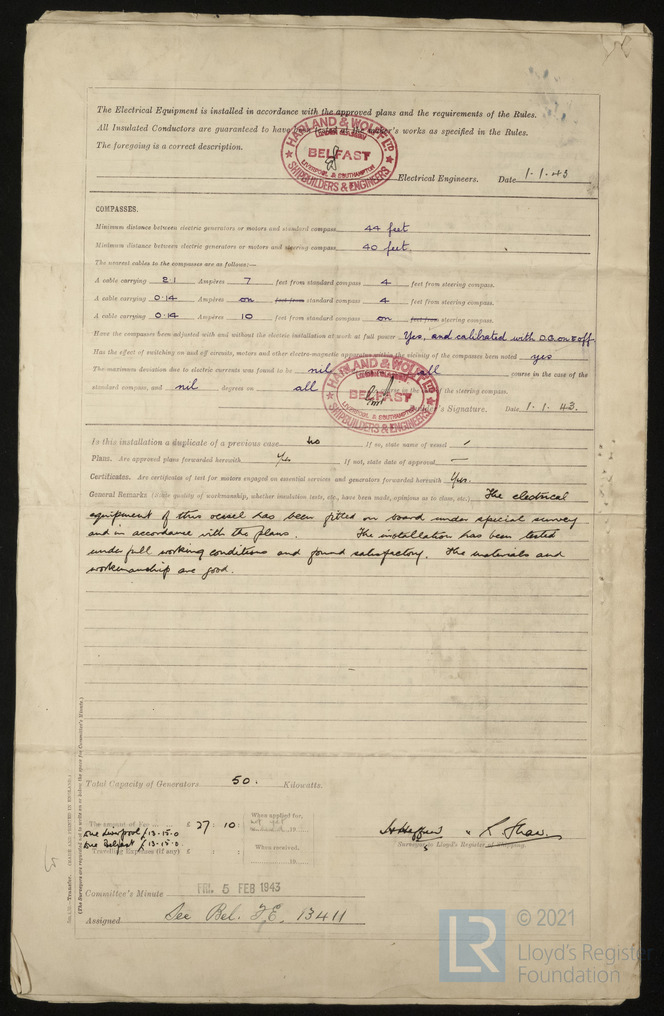 The Electrical Equipment is installed in accordance with the approved plans and the requirements of the Rules.
All Insulated Conductors are guaranteed to have been tested at the maker's works as specified in the Rules.
The foregoing is a correct description.
HARLAND & WOLFF LTD
BELFAST
LIVERPOOL & SOUTHAMPTON
SHIPBUILDERS & ENGINEERS
Electrical Engineers. Date 1.1.43
COMPASSES.
Minimum distance between electric generators or motors and standard compass 44 feet
Minimum distance between electric generators or motors and steering compass 40 feet
The nearest cables to the compasses are as follows:—
A cable carrying 2.1 Ampères 7 feet from standard compass 4 feet from steering compass.
A cable carrying 0.14 Ampères on feet from standard compass 4 feet from steering compass.
A cable carrying 0.14 Ampères 10 feet from standard compass on feet from steering compass.
Have the compasses been adjusted with and without the electric installation at work at full power Yes, and calibrated with D.G. on & off
Has the effect of switching on and off circuits, motors and other electro-magnetic apparatus within the vicinity of the compasses been noted yes
The maximum deviation due to electric currents was found to be nil all course in the case of the
standard compass, and nil degrees on all course in the of the steering compass.
HARLAND & WOLFF LTD
BELFAST
LIVERPOOL & SOUTHAMPTON
SHIPBUILDERS & ENGINEERS
Signature. Date 1.1.43.
Is this installation a duplicate of a previous case No If so, state name of vessel /
Plans. Are approved plans forwarded herewith Yes If not, state date of approval —
Certificates. Are certificates of test for motors engaged on essential services and generators forwarded herewith Yes.
General Remarks (State quality of workmanship, whether insulation tests, etc., have been made, opinions as to class, etc.) The electrical
equipment of this vessel has been fitted on board under special survey
and in accordance with the plans. The installation has been tested
under full working conditions and found satisfactory. The materials and
workmanship are good.
Total Capacity of Generators 50. Kilowatts.
The amount of Fee £ 27 : 10 : When applied for,
not yet
19
One Liverpool £13-15-0
One Belfast £13-15-0
Travelling Expenses (if any) £ : : When received.
19
Surveyors to Lloyd's Register of Shipping.
Committee's Minute FRI. 5 FEB 1943
Assigned See Bel. F.E. 13411
(The Surveyors are requested not to write on or below the space for Committee's Minute.)
LR
© 2021
Lloyd's Register
Foundation